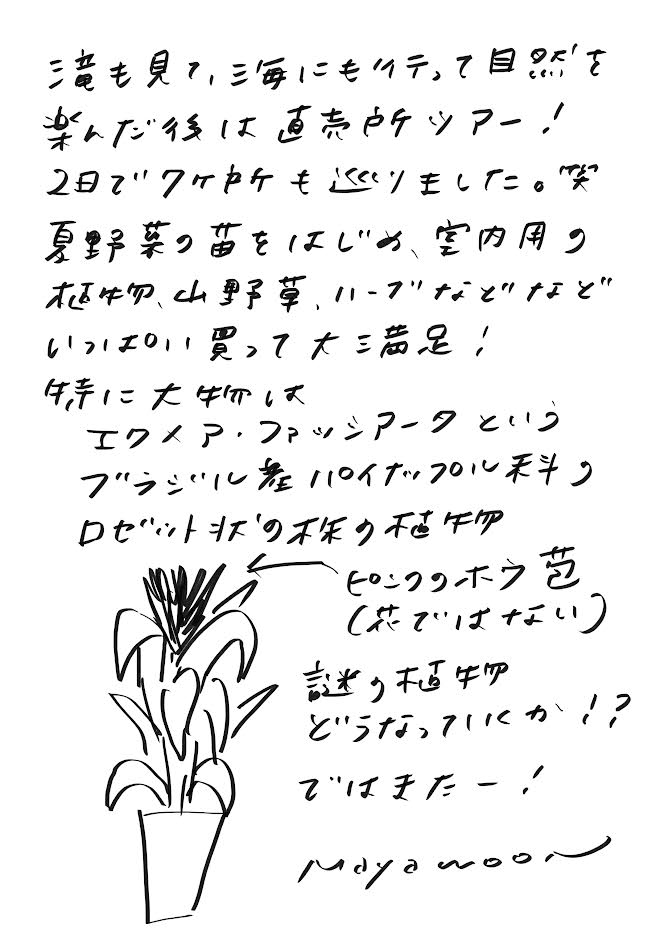 滝も見て、海にも行って自然を
楽んだ後は直売所ツアー！
2日で7ヶ所も巡りました。笑
夏野菜の苗をはじめ、室内用の
植物、山野草、ハーブなどなど
いっぱい買って大満足！
特に大物は
エクメア・ファッシアータという
ブラジル産パイナップル科の
ロゼット状の株の植物
ピンクのホウ苞
(花ではない)
謎の植物
どうなっていくか！？
ではまたー！
Mayamoon